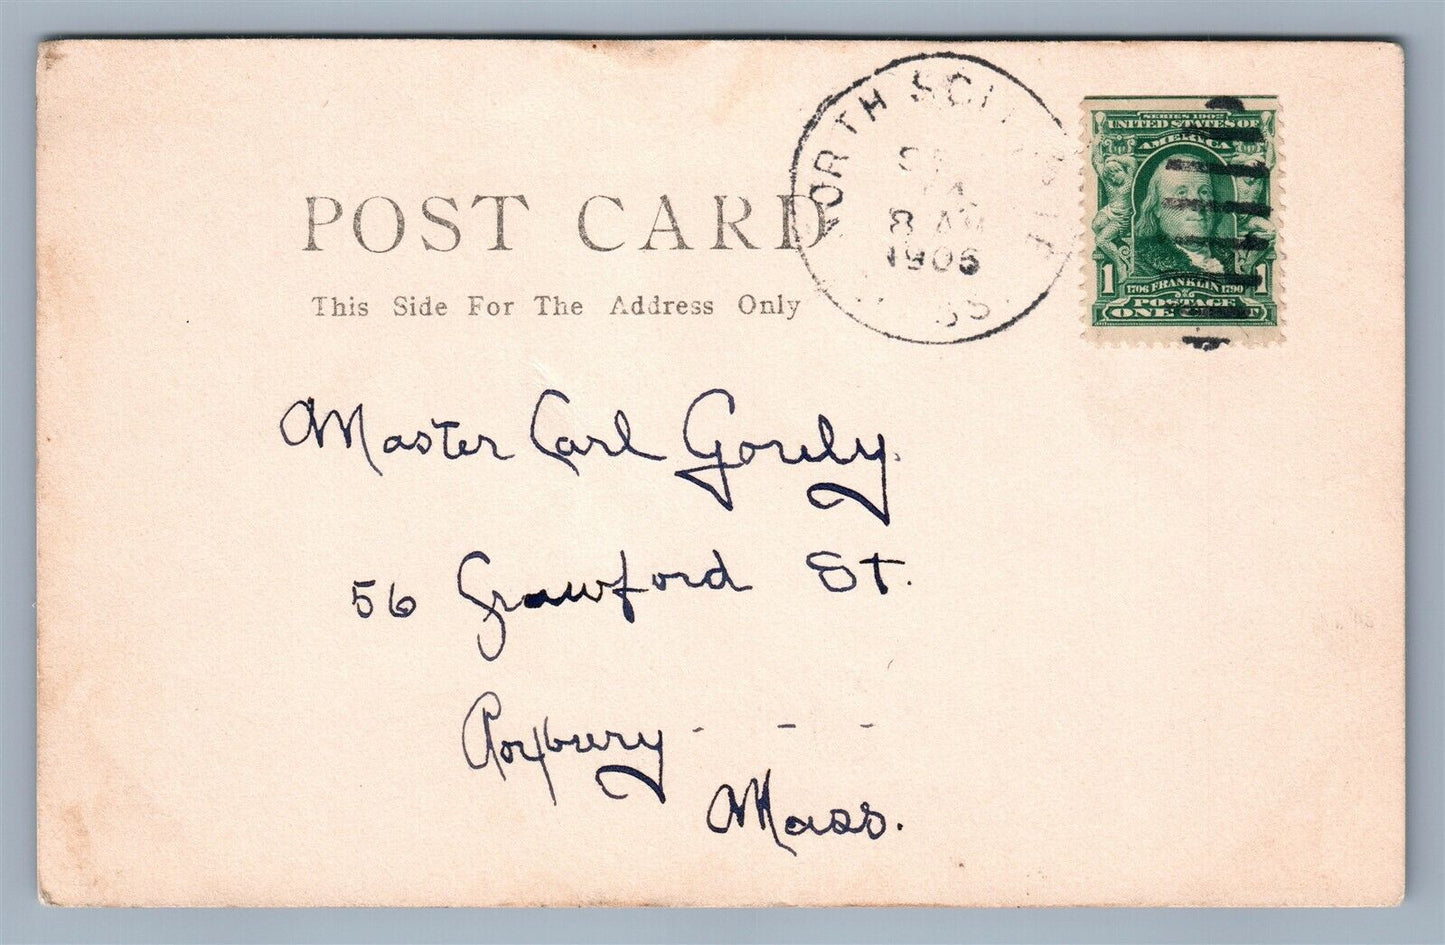 POST CARD
This Side For The Address Only
NORTH SCITUATE
8 AM
1906
MASS
SERIES 1902
UNITED STATES OF
AMERICA
1 1
1706 FRANKLIN 1790
POSTAGE
ONE CENT
Master Carl Gourly.
56 Crawford St.
Roxbury - - -
Mass.